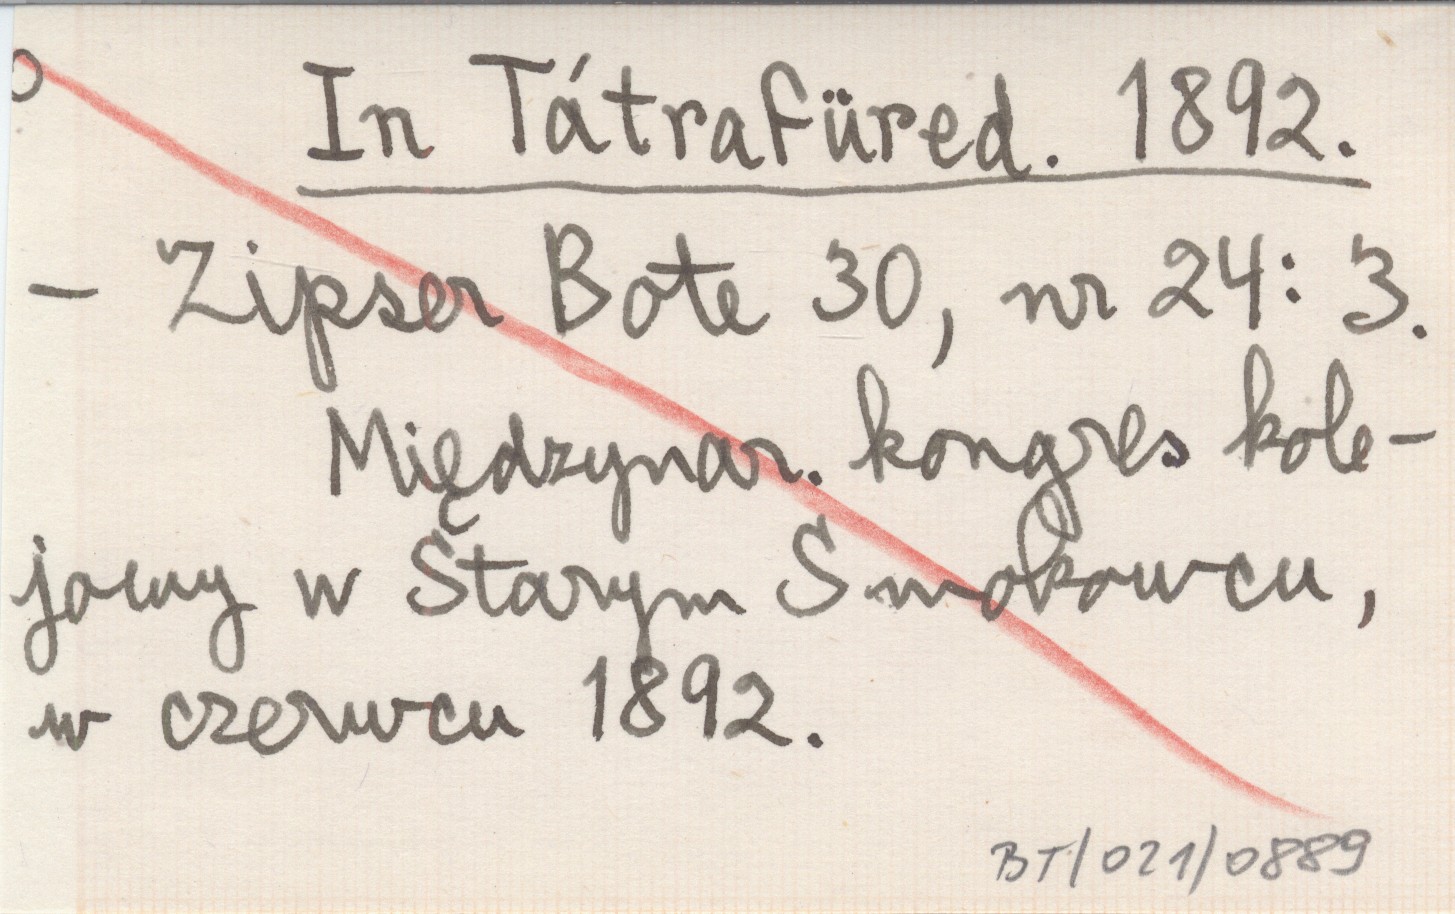 o
In Tátrafüred. 1892.
- Zipser Bote 30, nr 24: 3.
Międzynar. kongres kole-
jowy w Starym Smokowcu,
w czerwcu 1892.
BT/021/0889